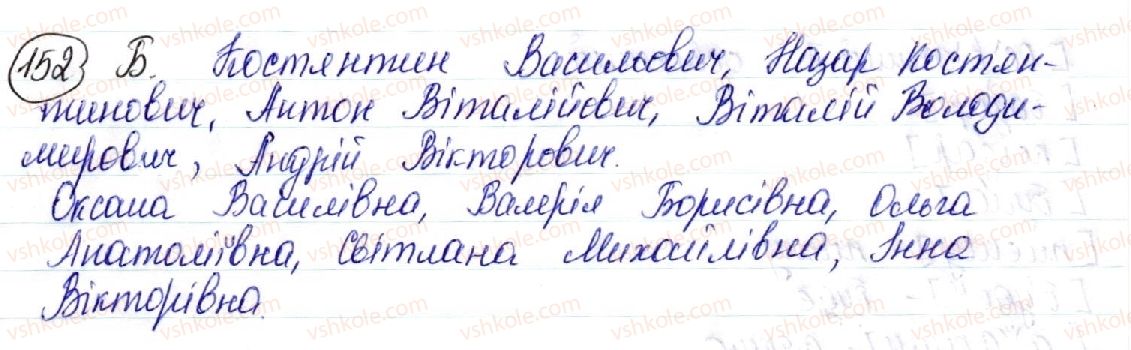 152 Б. Костянтин Васильович, Назар Костян-
тинович, Антон Віталійович, Віталій Володи-
мирович, Андрій Вікторович.
Оксана Василівна, Валерія Борисівна, Ольга
Анатоліївна, Світлана Михайлівна, Інна
Вікторівна.